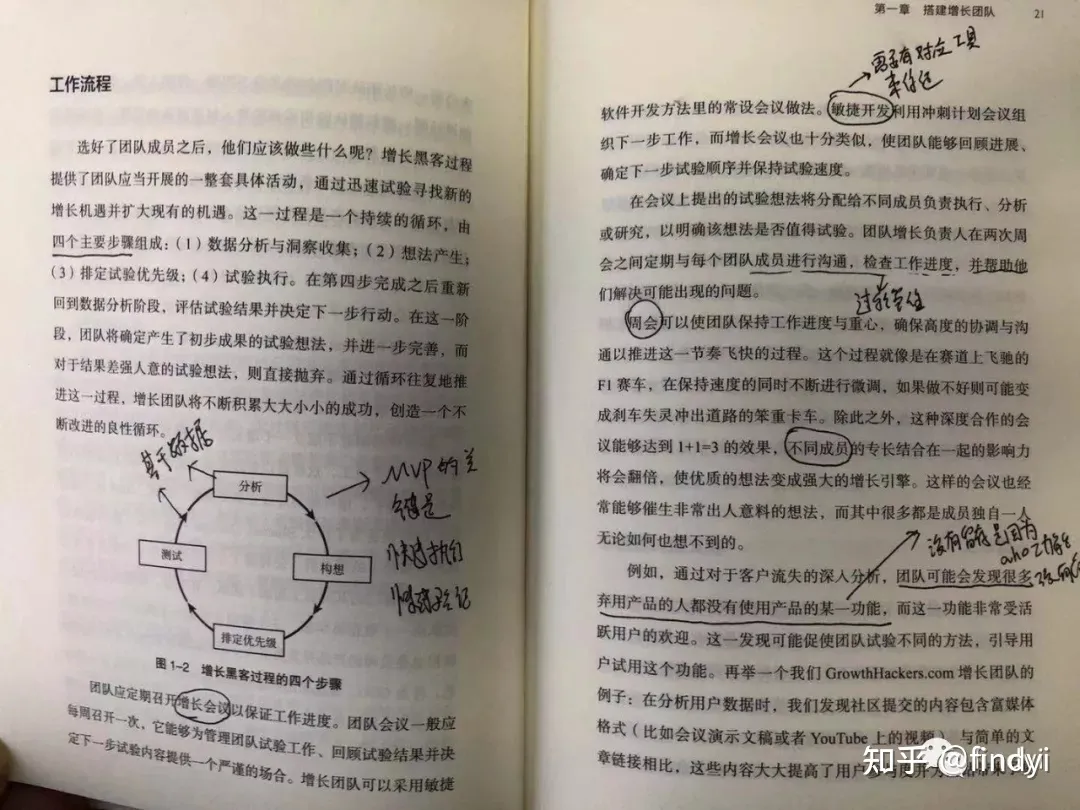 工作流程
选好了团队成员之后，他们应该做些什么呢？增长黑客过程
提供了团队应当开展的一整套具体活动，通过迅速试验寻找新的
增长机遇并扩大现有的机遇。这一过程是一个持续的循环，由
四个主要步骤组成：（1）数据分析与洞察收集；（2）想法产生；
（3）排定试验优先级；（4）试验执行。在第四步完成之后重新
回到数据分析阶段，评估试验结果并决定下一步行动。在这一阶
段，团队将确定产生了初步成果的试验想法，并进一步完善，而
对于结果差强人意的试验想法，则直接抛弃。通过循环往复地推
进这一过程，增长团队将不断积累大大小小的成功，创造一个不
断改进的良性循环。
基于数据
分析
MVP的关
键是
快速执行
快速验证
测试
构想
排定优先级
图 1-2 增长黑客过程的四个步骤
团队应定期召开增长会议以保证工作进度。团队会议一般应
每周召开一次，它能够为管理团队试验工作、回顾试验结果并决
定下一步试验内容提供一个严谨的场合。增长团队可以采用敏捷
第一章 搭建增长团队 21
需要有对应工具
来使
软件开发方法里的常设会议做法。敏捷开发利用冲刺计划会议组
织下一步工作，而增长会议也十分类似，使团队能够回顾进展、
确定下一步试验顺序并保持试验速度。
在会议上提出的试验想法将分配给不同成员负责执行、分析
或研究，以明确该想法是否值得试验。团队增长负责人在两次周
会之间定期与每个团队成员进行沟通，检查工作进度，并帮助他
们解决可能出现的问题。
过程管住
周会可以使团队保持工作进度与重心，确保高度的协调与沟
通以推进这一节奏飞快的过程。这个过程就像是在赛道上飞驰的
F1 赛车，在保持速度的同时不断进行微调，如果做不好则可能变
成刹车失灵冲出道路的笨重卡车。除此之外，这种深度合作的会
议能够达到 1+1=3 的效果，不同成员的专长结合在一起的影响力
将会翻倍，使优质的想法变成强大的增长引擎。这样的会议也经
常能够催生非常出人意料的想法，而其中很多都是成员独自一人
无论如何也想不到的。
没有留存是因为
aha
例如，通过对于客户流失的深入分析，团队可能会发现很多
弃用产品的人都没有使用产品的某一功能，而这一功能非常受活
跃用户的欢迎。这一发现可能促使团队试验不同的方法，引导用
户试用这个功能。再举一个我们 GrowthHackers.com 增长团队的
例子：在分析用户数据时，我们发现社区提交的内容包含富媒体
格式（比如会议演示文稿或者 YouTube 上的视频），与简单的文
章链接相比，这些内容大大提高了用户
知乎 @findyi